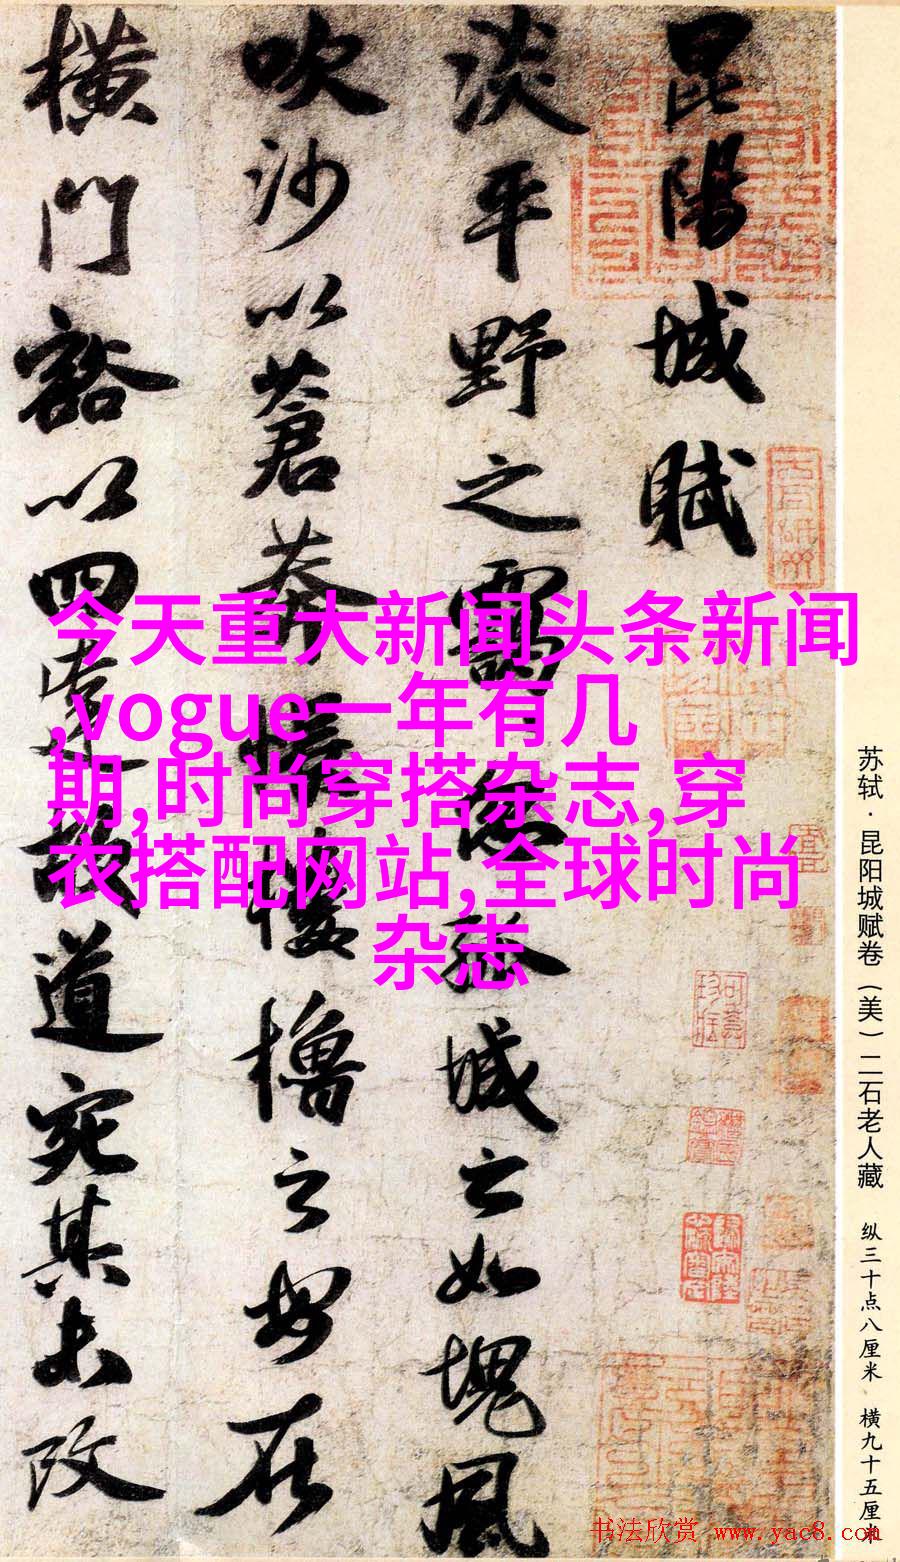 昆陽城賦
淡平野之靄忽孤城之如塊風
吹沙以蒼莽悵樓櫓之安在
橫門豁以四達故道宛其未改
今天重大新闻头条新闻
,vogue一年有几
期,时尚穿搭杂志,穿
衣搭配网站,全球时尚
杂志
苏轼·昆阳城赋卷（美）二石老人藏 纵三十点八厘米 横九十五厘米
书法欣赏 www.yac8.com